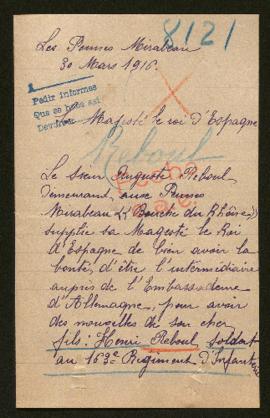 8121
Les Pennes Mirabeau
30 Mars 1916.
Pedir informes
Que se haga así
A Majesté le roi d'Espagne
Reboul
Le Sieur Auguste Reboul
demeurant aux Pennes
Mirabeau (Bouche du Rhône)
supplie sa Magesté le Roi
d'Espagne de bien avoir la
bonté d'être l'intermédiaire
auprès de l'Embassadeur
d'Allemagne, pour avoir
des nouvelles de son cher
fils: Henri Reboul, soldat
au 163e Régiment d'Infanterie